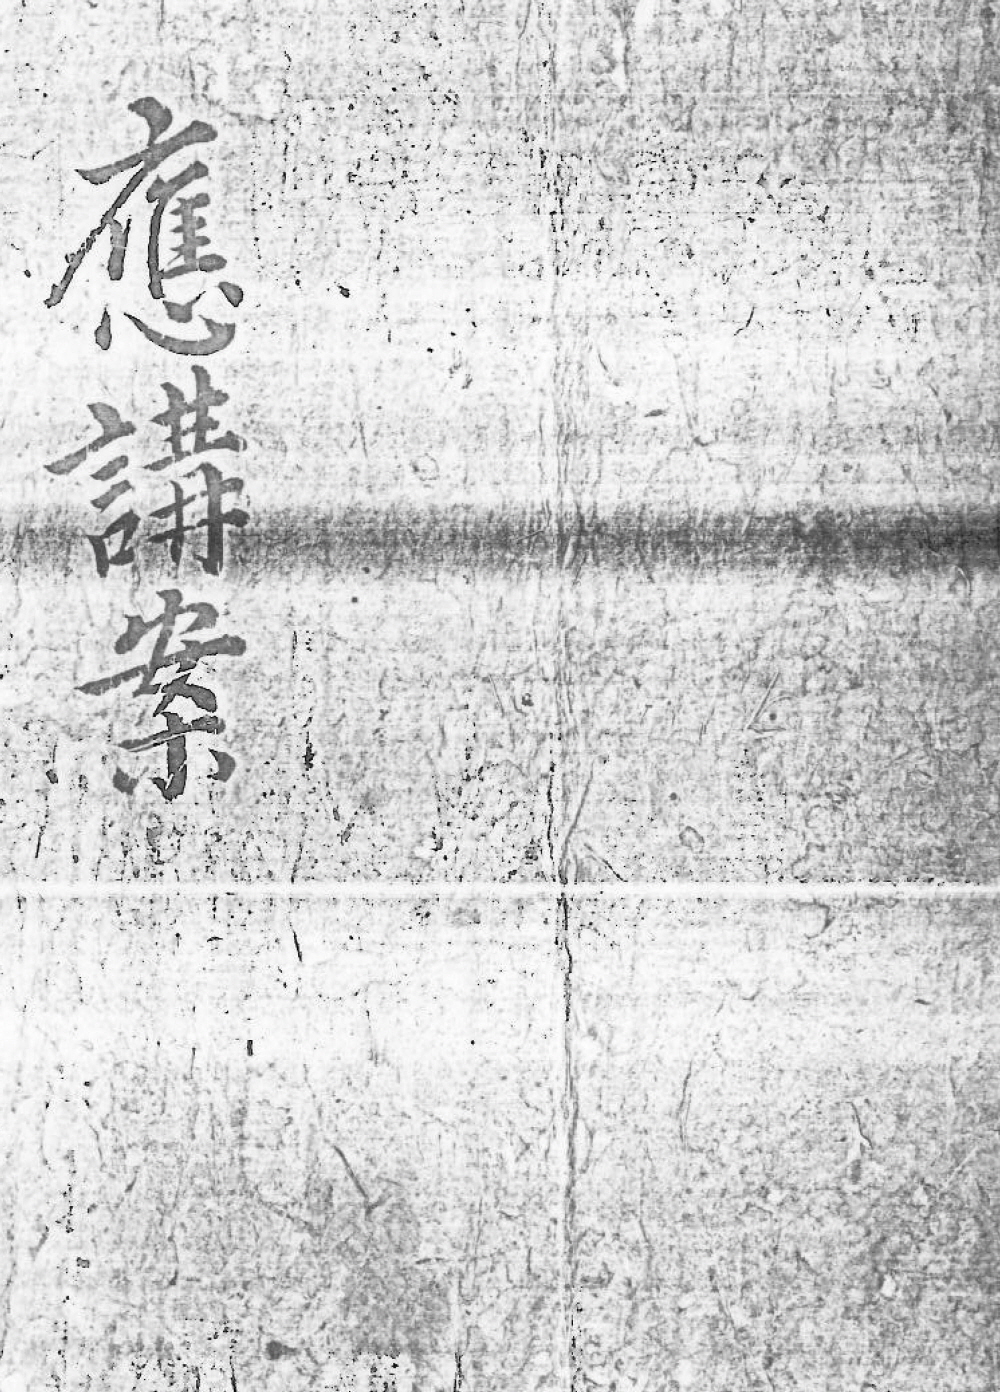 應講案